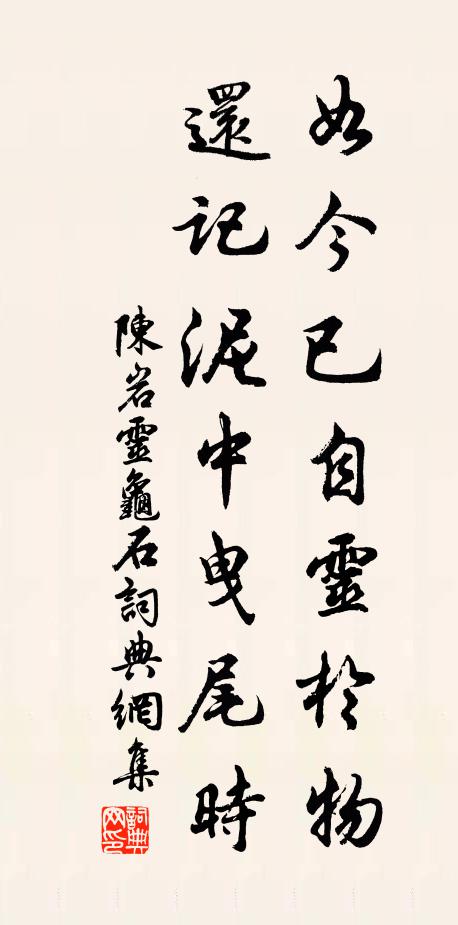 如今已自靈於物
還記泥中曳尾時
陳岩靈龜石詞典網集
詞典网印